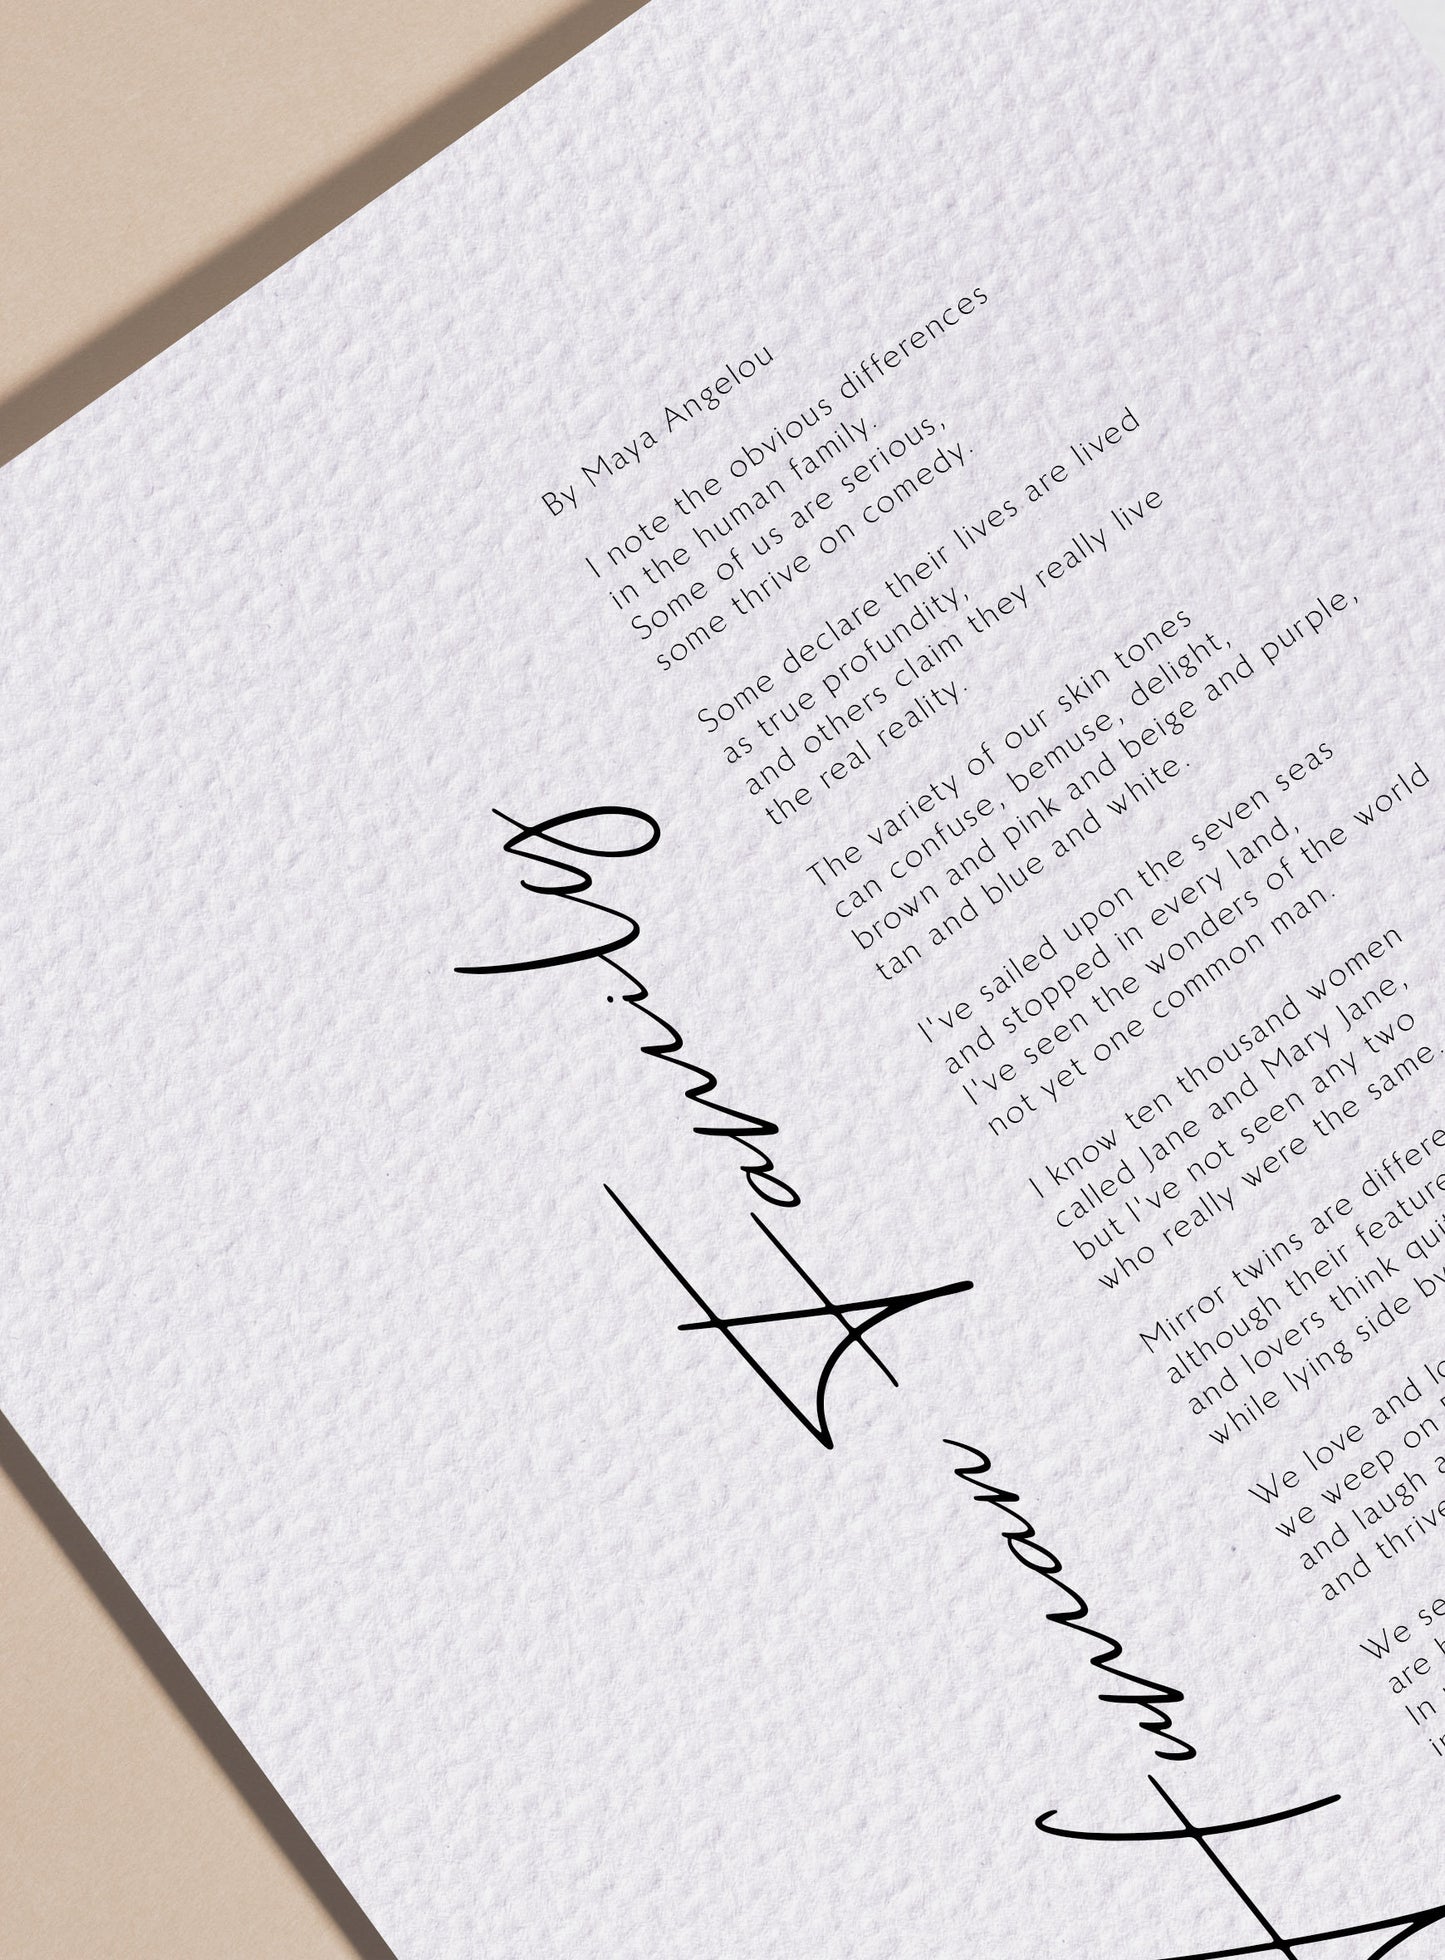 Human Family
By Maya Angelou
I note the obvious differences
in the human family.
Some of us are serious,
some thrive on comedy.
Some declare their lives are lived
as true profundity,
and others claim they really live
the real reality.
The variety of our skin tones
can confuse, bemuse, delight,
brown and pink and beige and purple,
tan and blue and white.
I've sailed upon the seven seas
and stopped in every land,
I've seen the wonders of the world
not yet one common man.
I know ten thousand women
called Jane and Mary Jane,
but I've not seen any two
who really were the same.
Mirror twins are differe
although their feature
and lovers think qui
while lying side by
We love and lo
we weep on
and laugh a
and thrive
We se
are
In